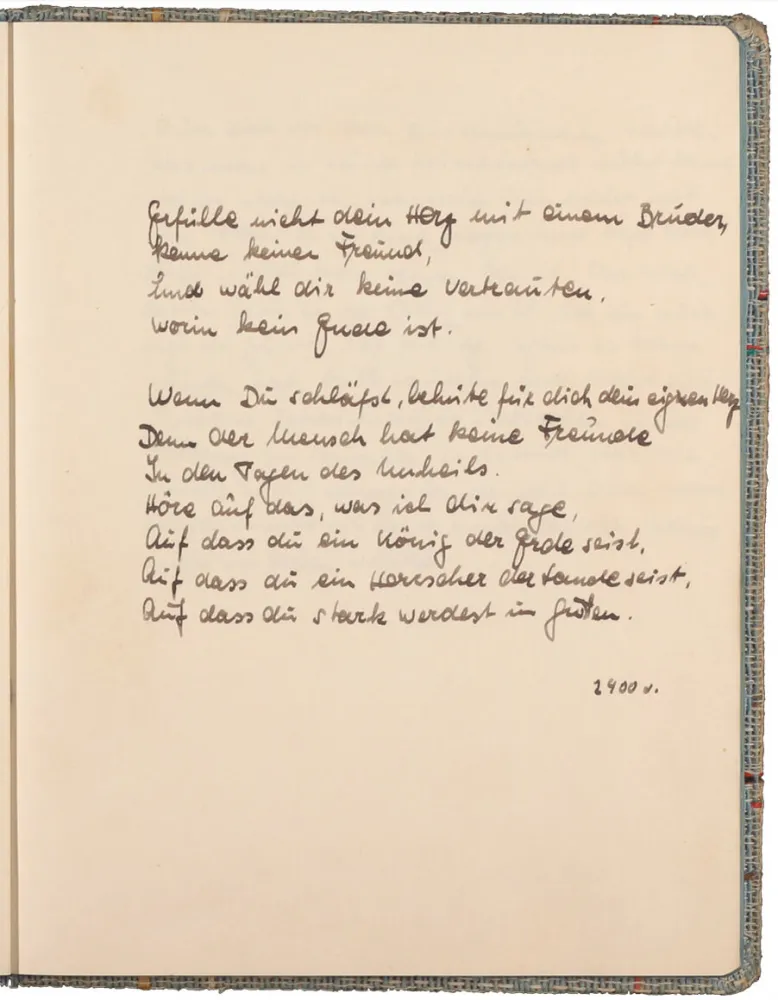 Erfülle nicht dein Herz mit einem Bruder,
kenne keinen Freund,
Und wähl dir keine Vertrauten,
worin kein Ende ist.
Wenn Du schläfst, behüte für dich dein eignen Herz
Denn der Mensch hat keine Freunde
In den Tagen des Unheils.
Höre auf das, was ich dir sage,
Auf dass du ein König der Erde seist,
Auf dass du ein Herrscher der Lande seist,
Auf dass du stark werdest im Guten.
2400 v.